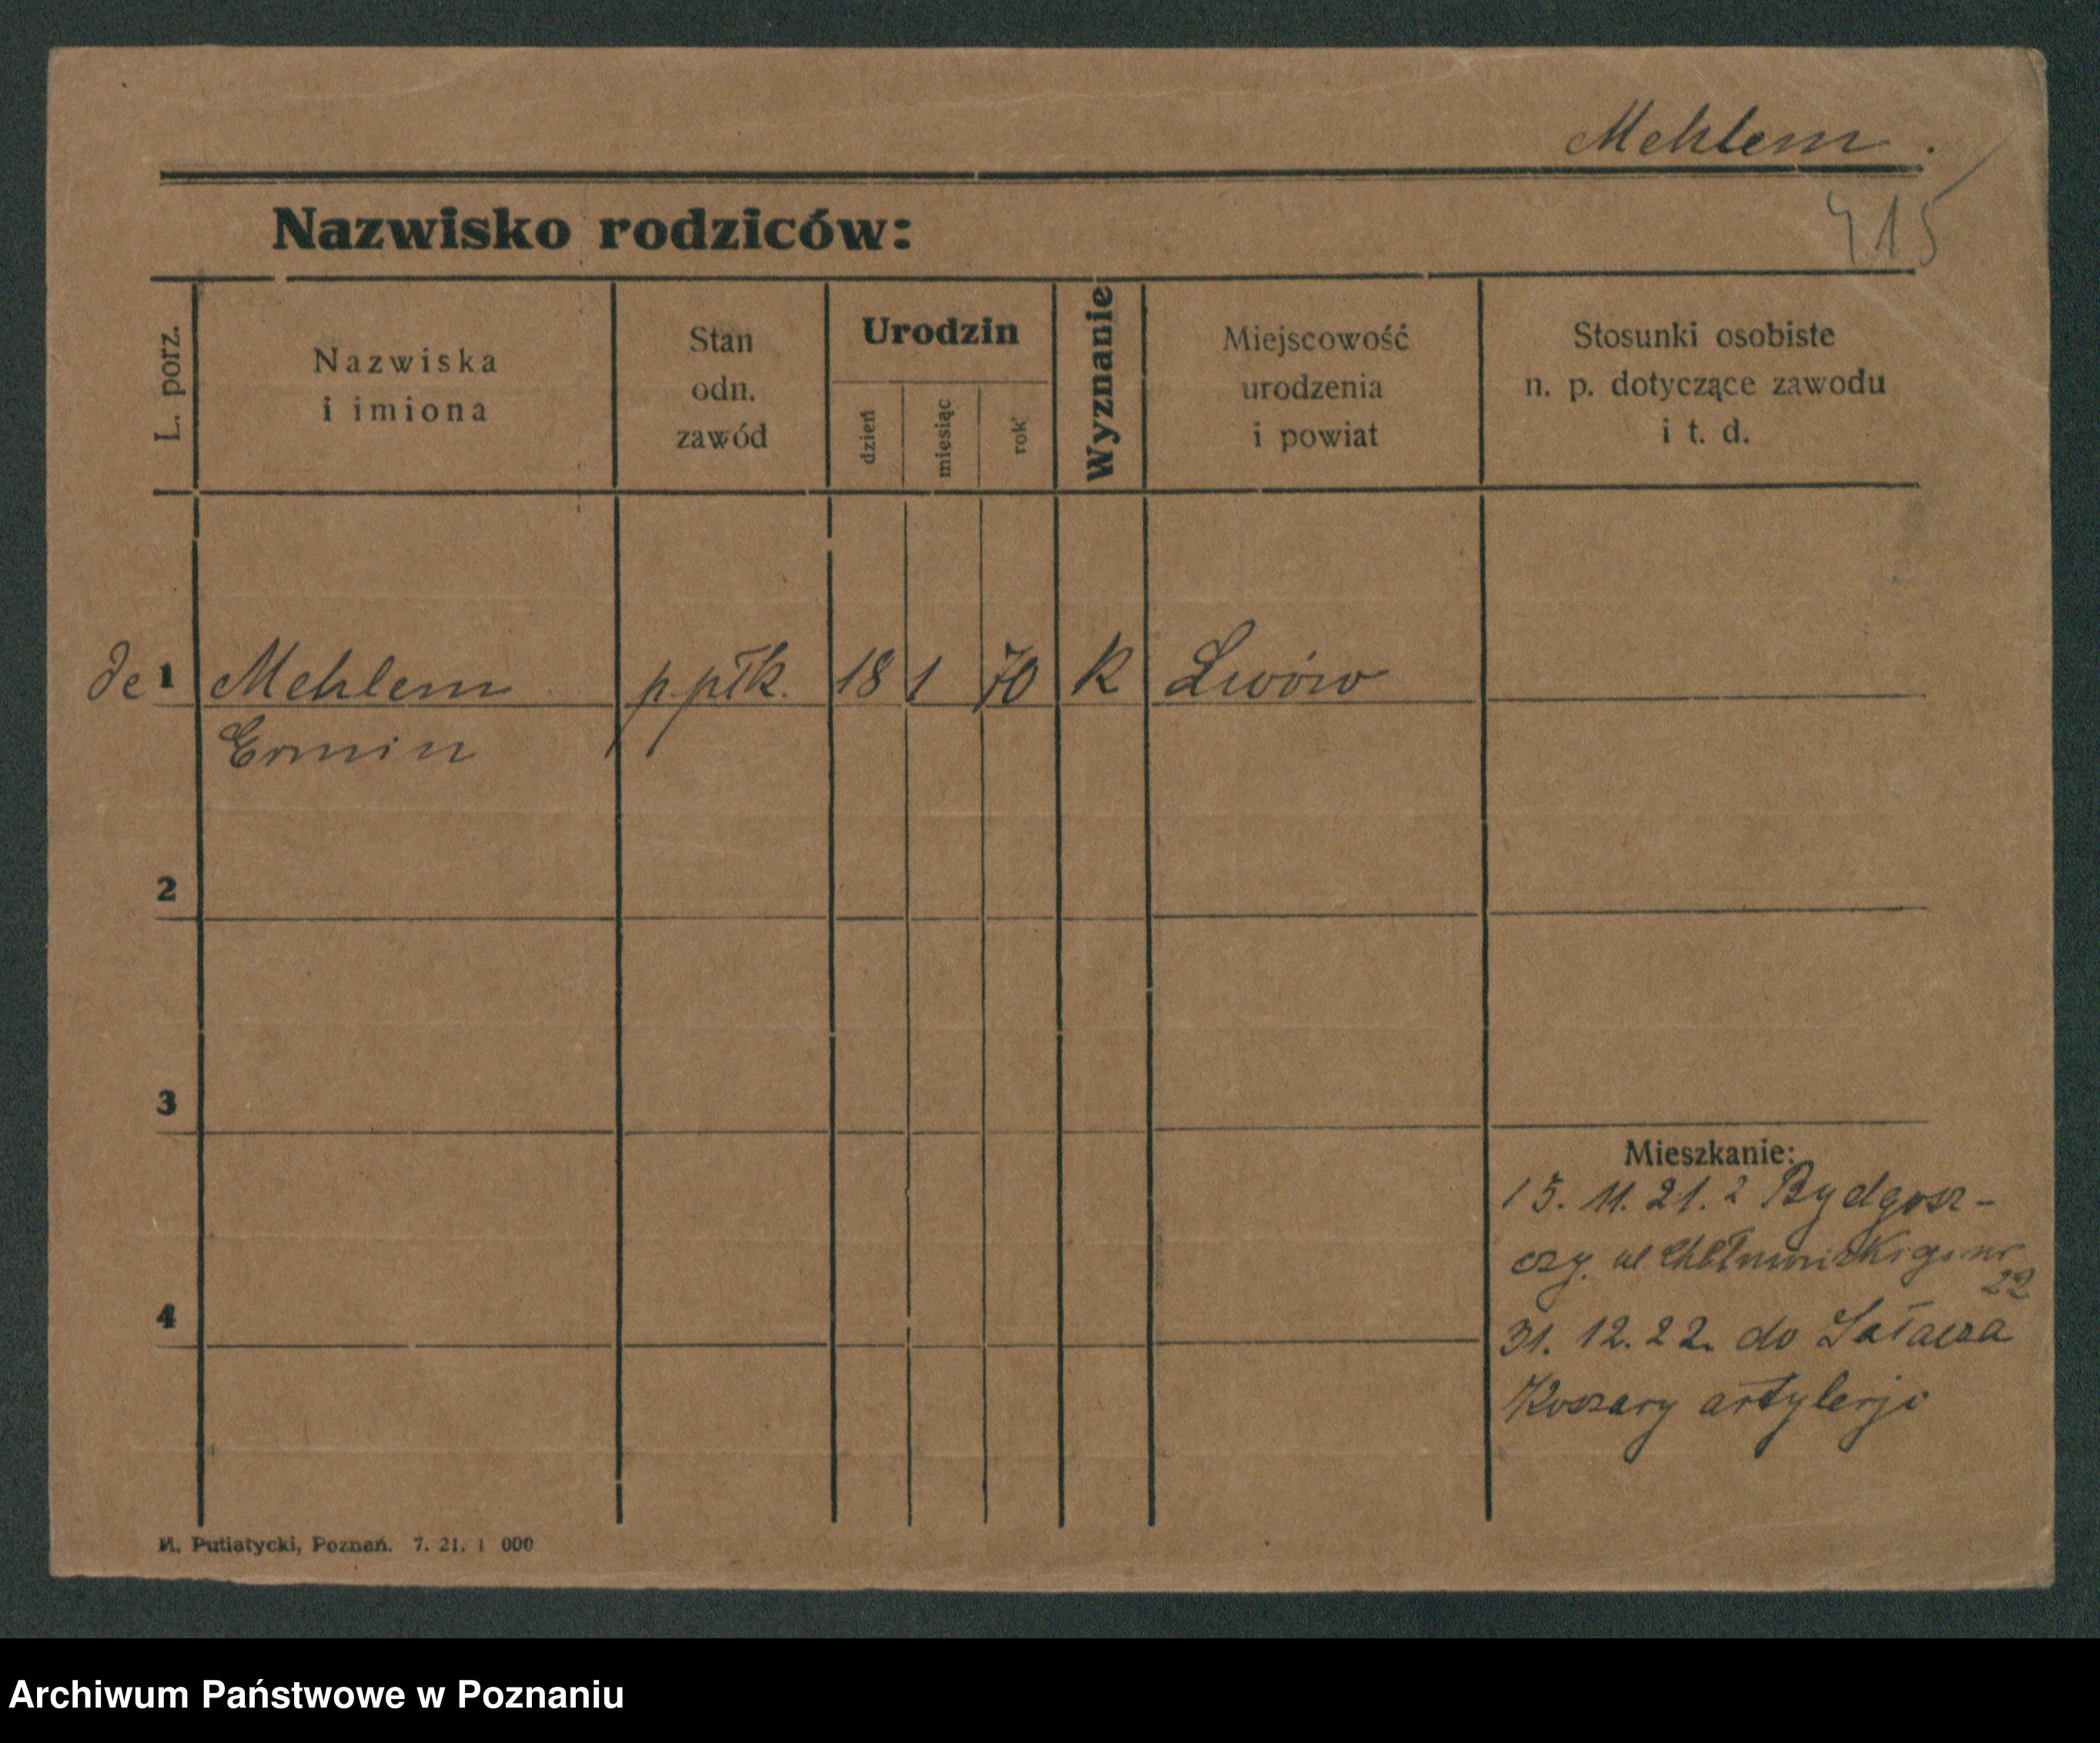 Mehlem.
Nazwisko rodziców:
915
L. porz.
Nazwiska
i imiona
Stan
odn.
zawód
Urodzin
dzień
miesiąc
rok
Wyznanie
Miejscowość
urodzenia
i powiat
Stosunki osobiste
n. p. dotyczące zawodu
i t. d.
de 1 Mehlem p.płk. 18 1 70 k Lwów
Ermin
2
3
Mieszkanie:
15. 11. 21. z Bydgosz-
czy. ul
22
4
31. 12. 22. do Sołacza
Koszary artylerji
M. Putiatycki, Poznań. 7. 21. 1 000
Archiwum Państwowe w Poznaniu